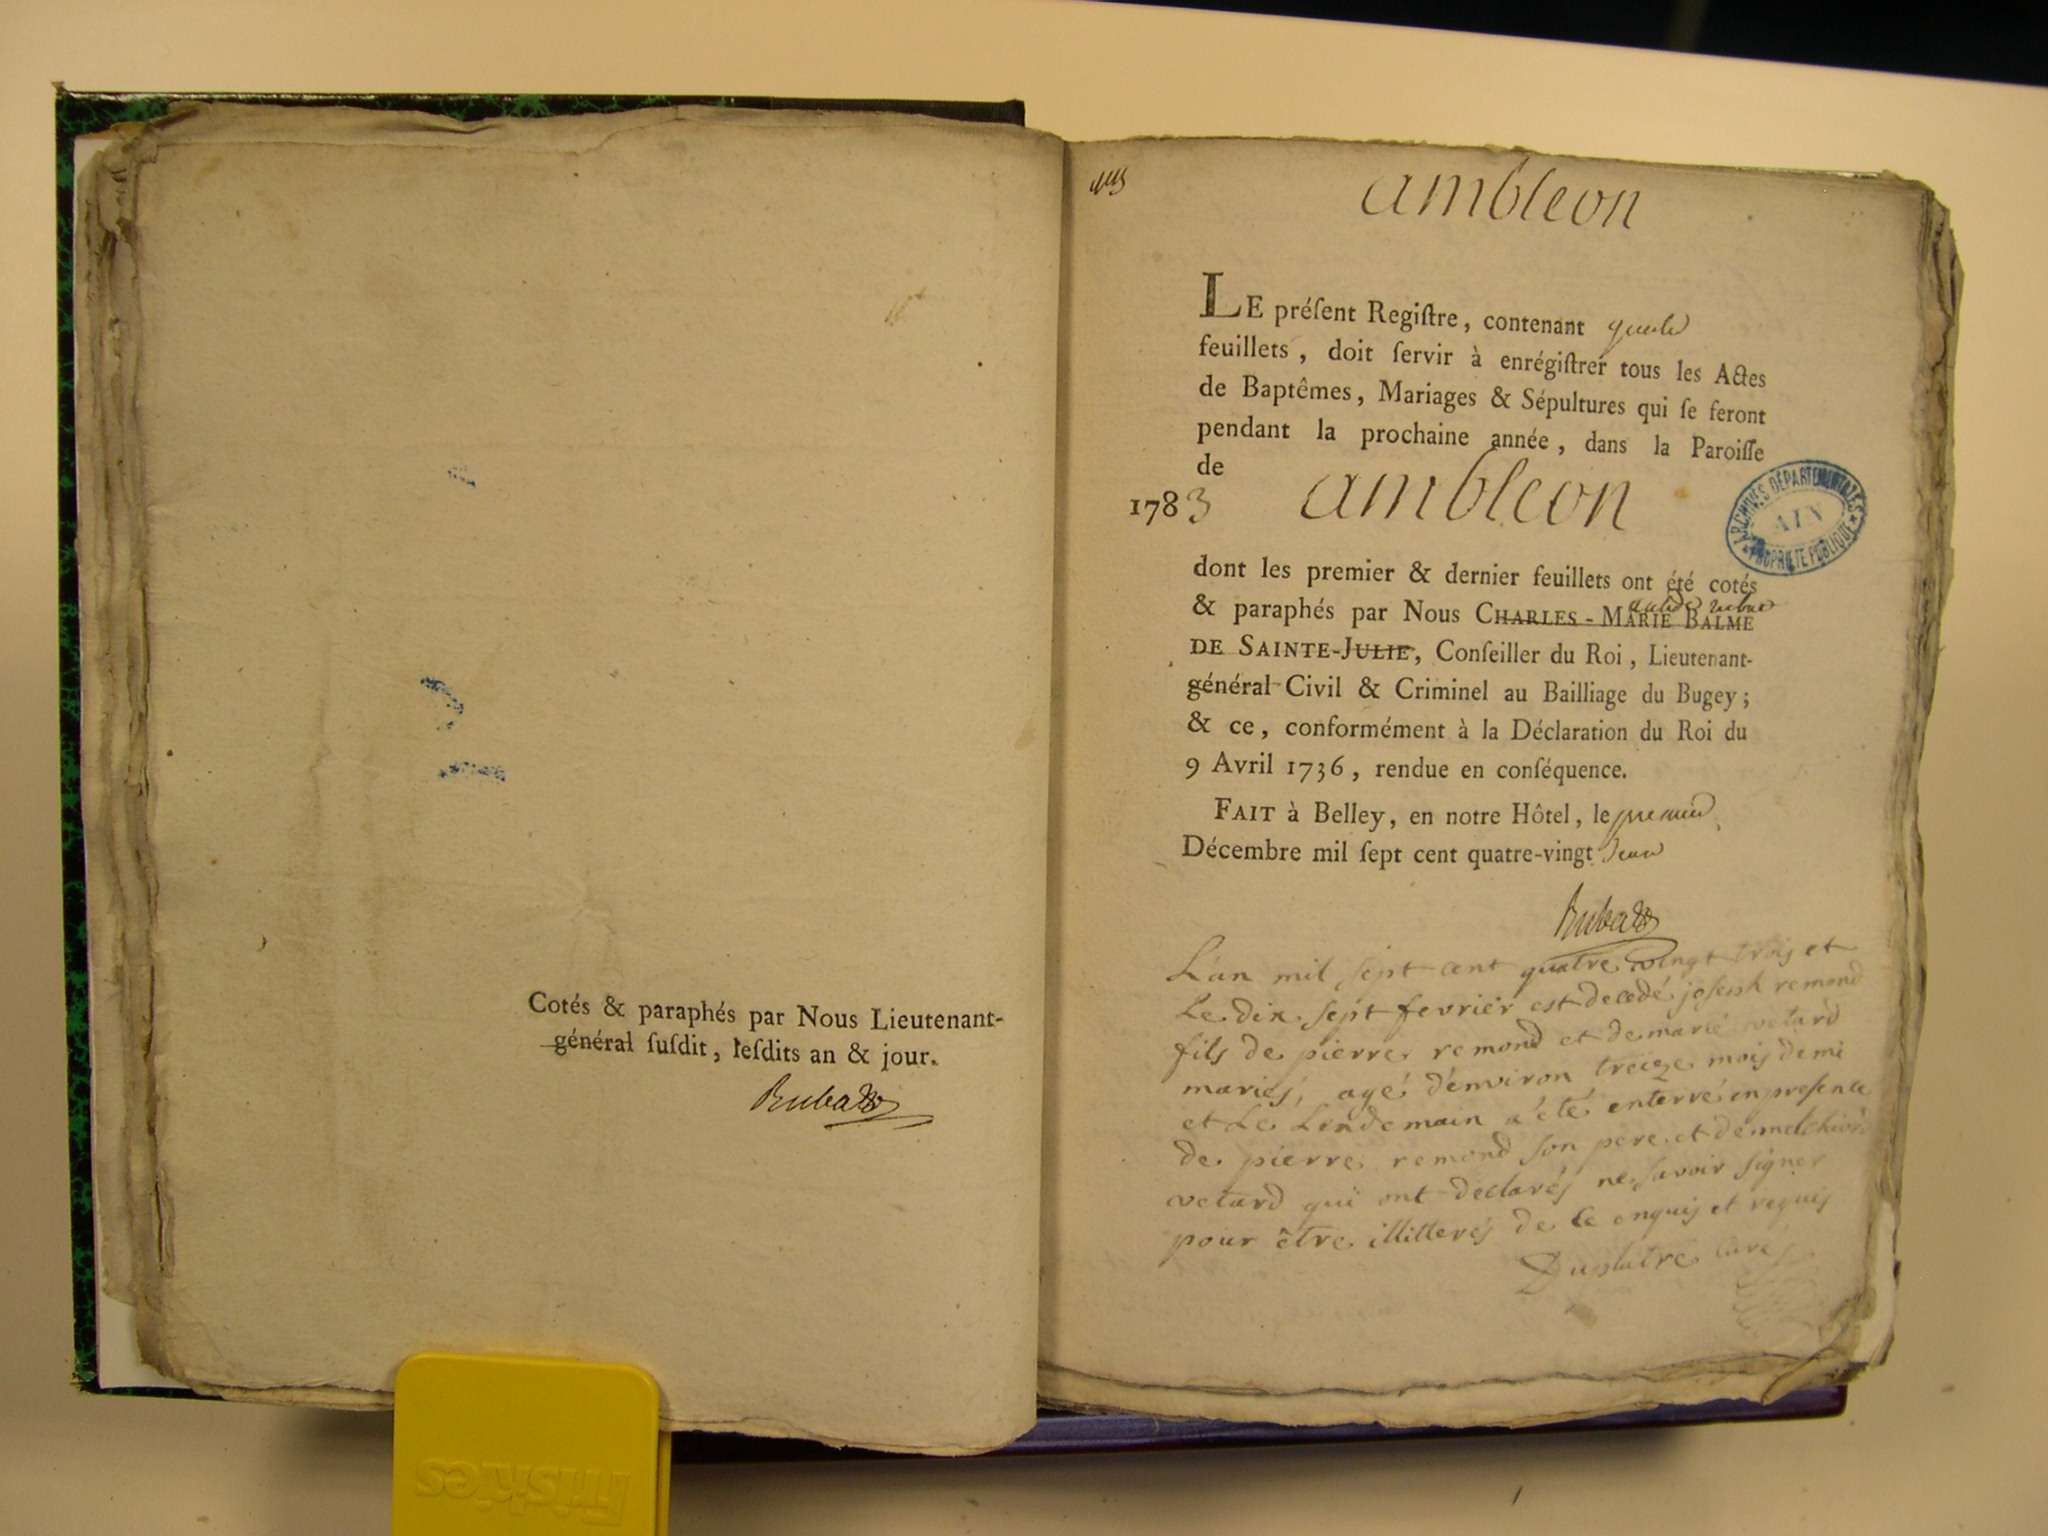 Cotés & paraphés par Nous Lieutenant-
général ſuſdit, leſdits an & jour.
Rubat
ambleon
LE préſent Regiſtre, contenant
feuillets, doit ſervir à enrégiſtrer tous les Actes
de Baptêmes, Mariages & Sépultures qui ſe feront
pendant la prochaine année, dans la Paroiſſe
de
1783 ambleon
dont les premier & dernier feuillets ont été cotés
& paraphés par Nous CHARLES-MARIE BALME
DE SAINTE-JULIE, Conſeiller du Roi, Lieutenant-
général Civil & Criminel au Bailliage du Bugey;
& ce, conformément à la Déclaration du Roi du
9 Avril 1736, rendue en conſéquence.
FAIT à Belley, en notre Hôtel, le premier
Décembre mil ſept cent quatre-vingt deux
Rubat
ARCHIVES DÉPARTEMENTALES
AIN
PROPRIÉTÉ PUBLIQUE
L'an mil sept cent quatre vingt trois et
Le dix sept fevrier est decedé joseph remond
fils de pierre remond et de marie vetard
mariés, agé d'environ treize mois demi
et Le Lendemain a été enterré en presence
de pierre remond son pere et de melchior
vetard qui ont declarés ne savoir signer
pour être illitterés de ce enquis et requis
Duplatre curé
Friskies